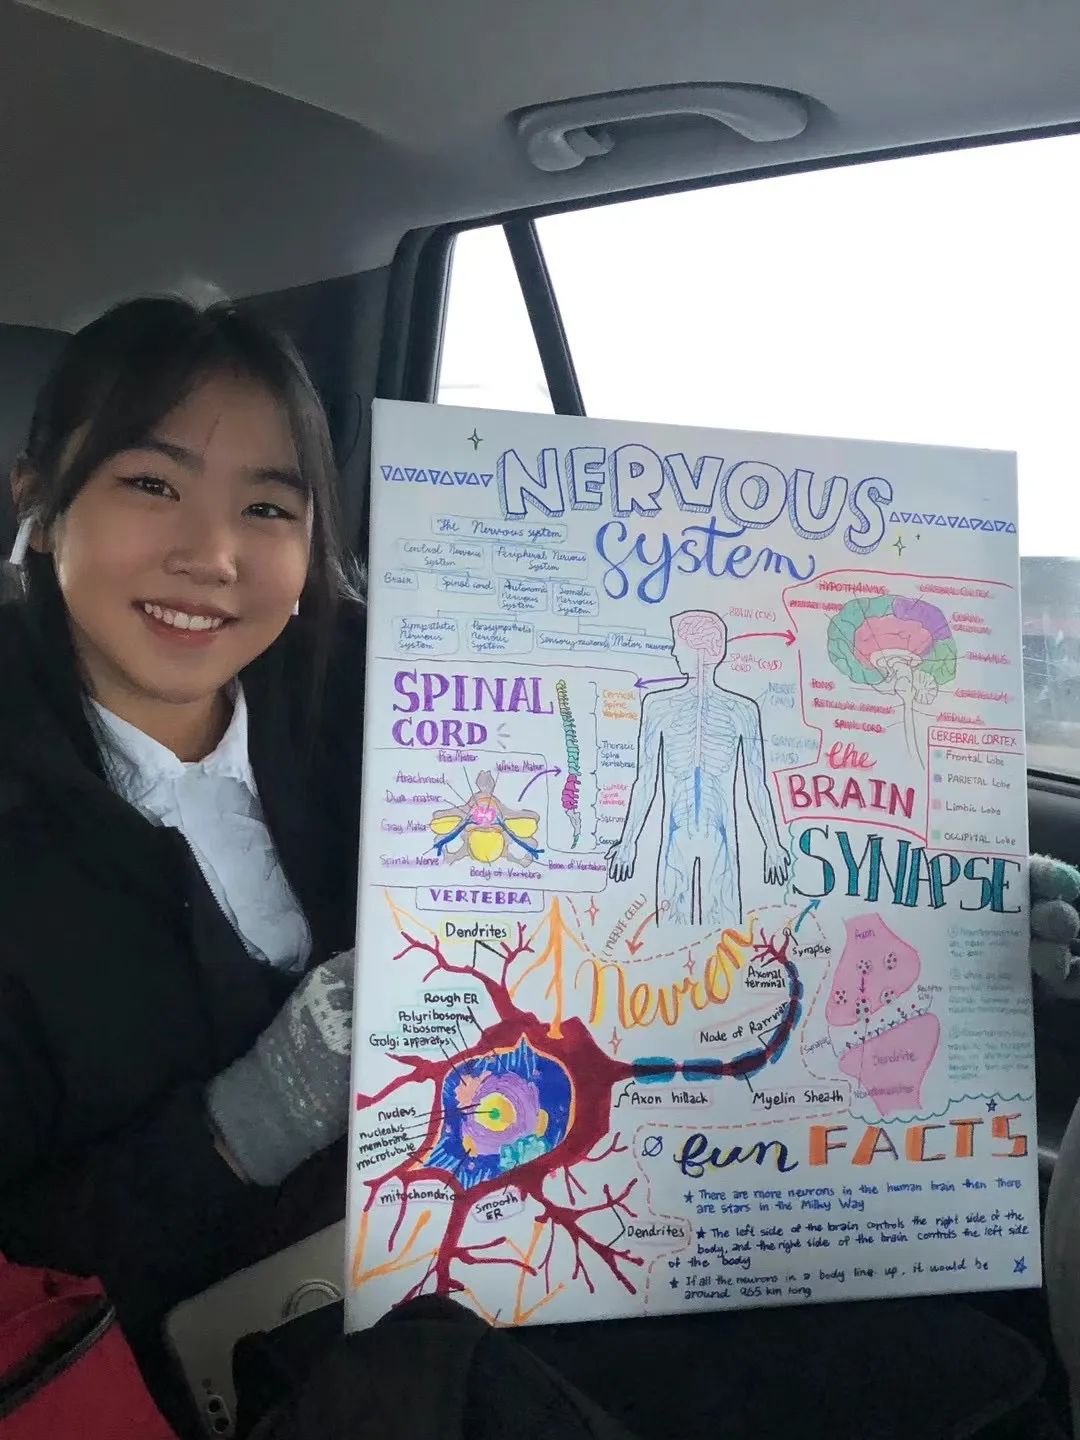 NERVOUS
System
The Nervous system
Central Nervous
System
Peripheral Nervous
System
Brain
Spinal cord
Autonomic
Nervous
System
Somatic
Nervous
System
Sympathetic
Nervous
System
Parasympathetic
nervous
System
Sensory neurons
Motor neurons
SPINAL
CORD
Cervical
Spine
Vertebrae
Thoracic
Spine
Vertebrae
Lumbar
Spine
Sacrum
Pia Mater
White Matter
Arachnoid
Dura mater
Gray Matter
Spinal Nerve
Body of Vertebra
Bone of Vertebra
VERTEBRA
BRAIN (CNS)
SPINAL
CORD (CNS)
NERVE
(PNS)
HYPOTHALAMUS
CEREBRAL CORTEX
THALAMUS
PONS
CEREBELLUM
SPINAL CORD
MEDULLA
the
BRAIN
CEREBRAL CORTEX
Frontal Lobe
PARIETAL Lobe
Limbic Lobe
OCCIPITAL Lobe
(NERVE CELL)
Neuron
Dendrites
Rough ER
Polyribosomes
Ribosomes
Golgi apparatus
nucleus
nucleolus
membrane
microtubule
mitochondria
Smooth
ER
Dendrites
Axon hillack
Myelin Sheath
Node of Ranvier
Axonal
terminal
synapse
SYNAPSE
Axon
Receptor
Dendrite
fun FACTS
There are more neurons in the human brain then there
are stars in the Milky Way
The left side of the brain controls the right side of the
body, and the right side of the brain controls the left side
of the body
If all the neurons in a body line up, it would be
around 965 km long